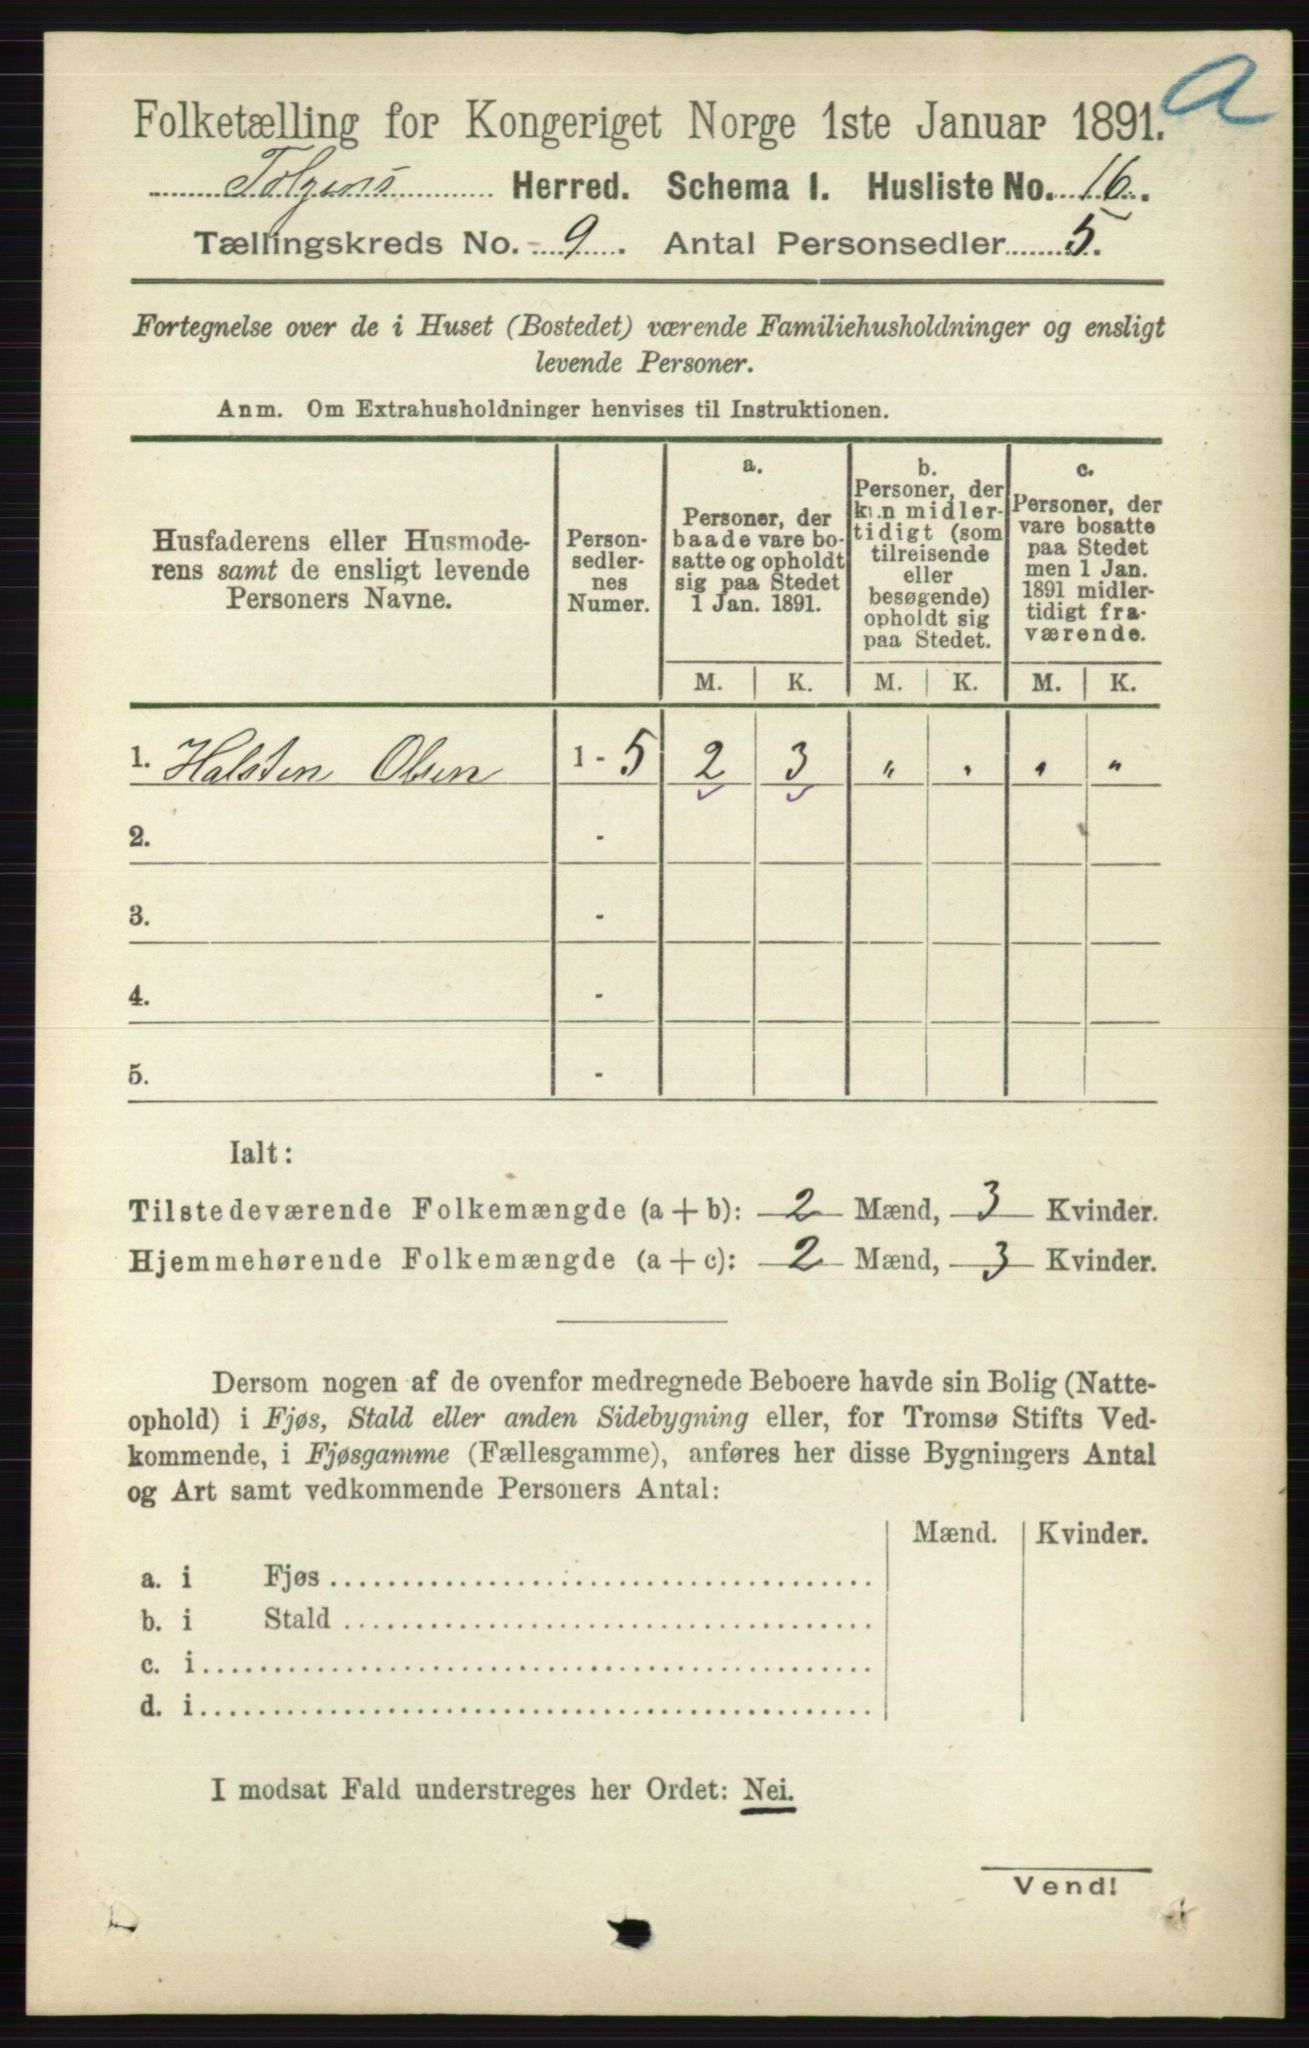 a
Folketælling for Kongeriget Norge 1ste Januar 1891.
Tolgens Herred. Schema I. Husliste No. 16.
Tællingskreds No. 9. Antal Personsedler 5.
Fortegnelse over de i Huset (Bostedet) værende Familiehusholdninger og ensligt
levende Personer.
Anm. Om Extrahusholdninger henvises til Instruktionen.
Husfaderens eller Husmode-
rens samt de ensligt levende
Personers Navne.
Person-
sedler-
nes
Numer.
a.
Personer, der
baade vare bo-
satte og opholdt
sig paa Stedet
1 Jan. 1891.
b.
Personer, der
kun midler-
tidigt (som
tilreisende
eller
besøgende)
opholdt sig
paa Stedet.
c.
Personer, der
vare bosatte
paa Stedet
men 1 Jan.
1891 midler-
tidigt fra-
værende.
M. K. M. K. M. K.
1. Halsten Olsen 1 - 5 2 3 " " " "
2. -
3. -
4. -
5. -
Ialt:
Tilstedeværende Folkemængde (a + b): 2 Mænd, 3 Kvinder.
Hjemmehørende Folkemængde (a + c): 2 Mænd, 3 Kvinder.
Dersom nogen af de ovenfor medregnede Beboere havde sin Bolig (Natte-
ophold) i Fjøs, Stald eller anden Sidebygning eller, for Tromsø Stifts Ved-
kommende, i Fjøsgamme (Fællesgamme), anføres her disse Bygningers Antal
og Art samt vedkommende Personers Antal:
Mænd. Kvinder.
a. i Fjøs
b. i Stald
c. i
d. i
I modsat Fald understreges her Ordet: Nei.
Vend!